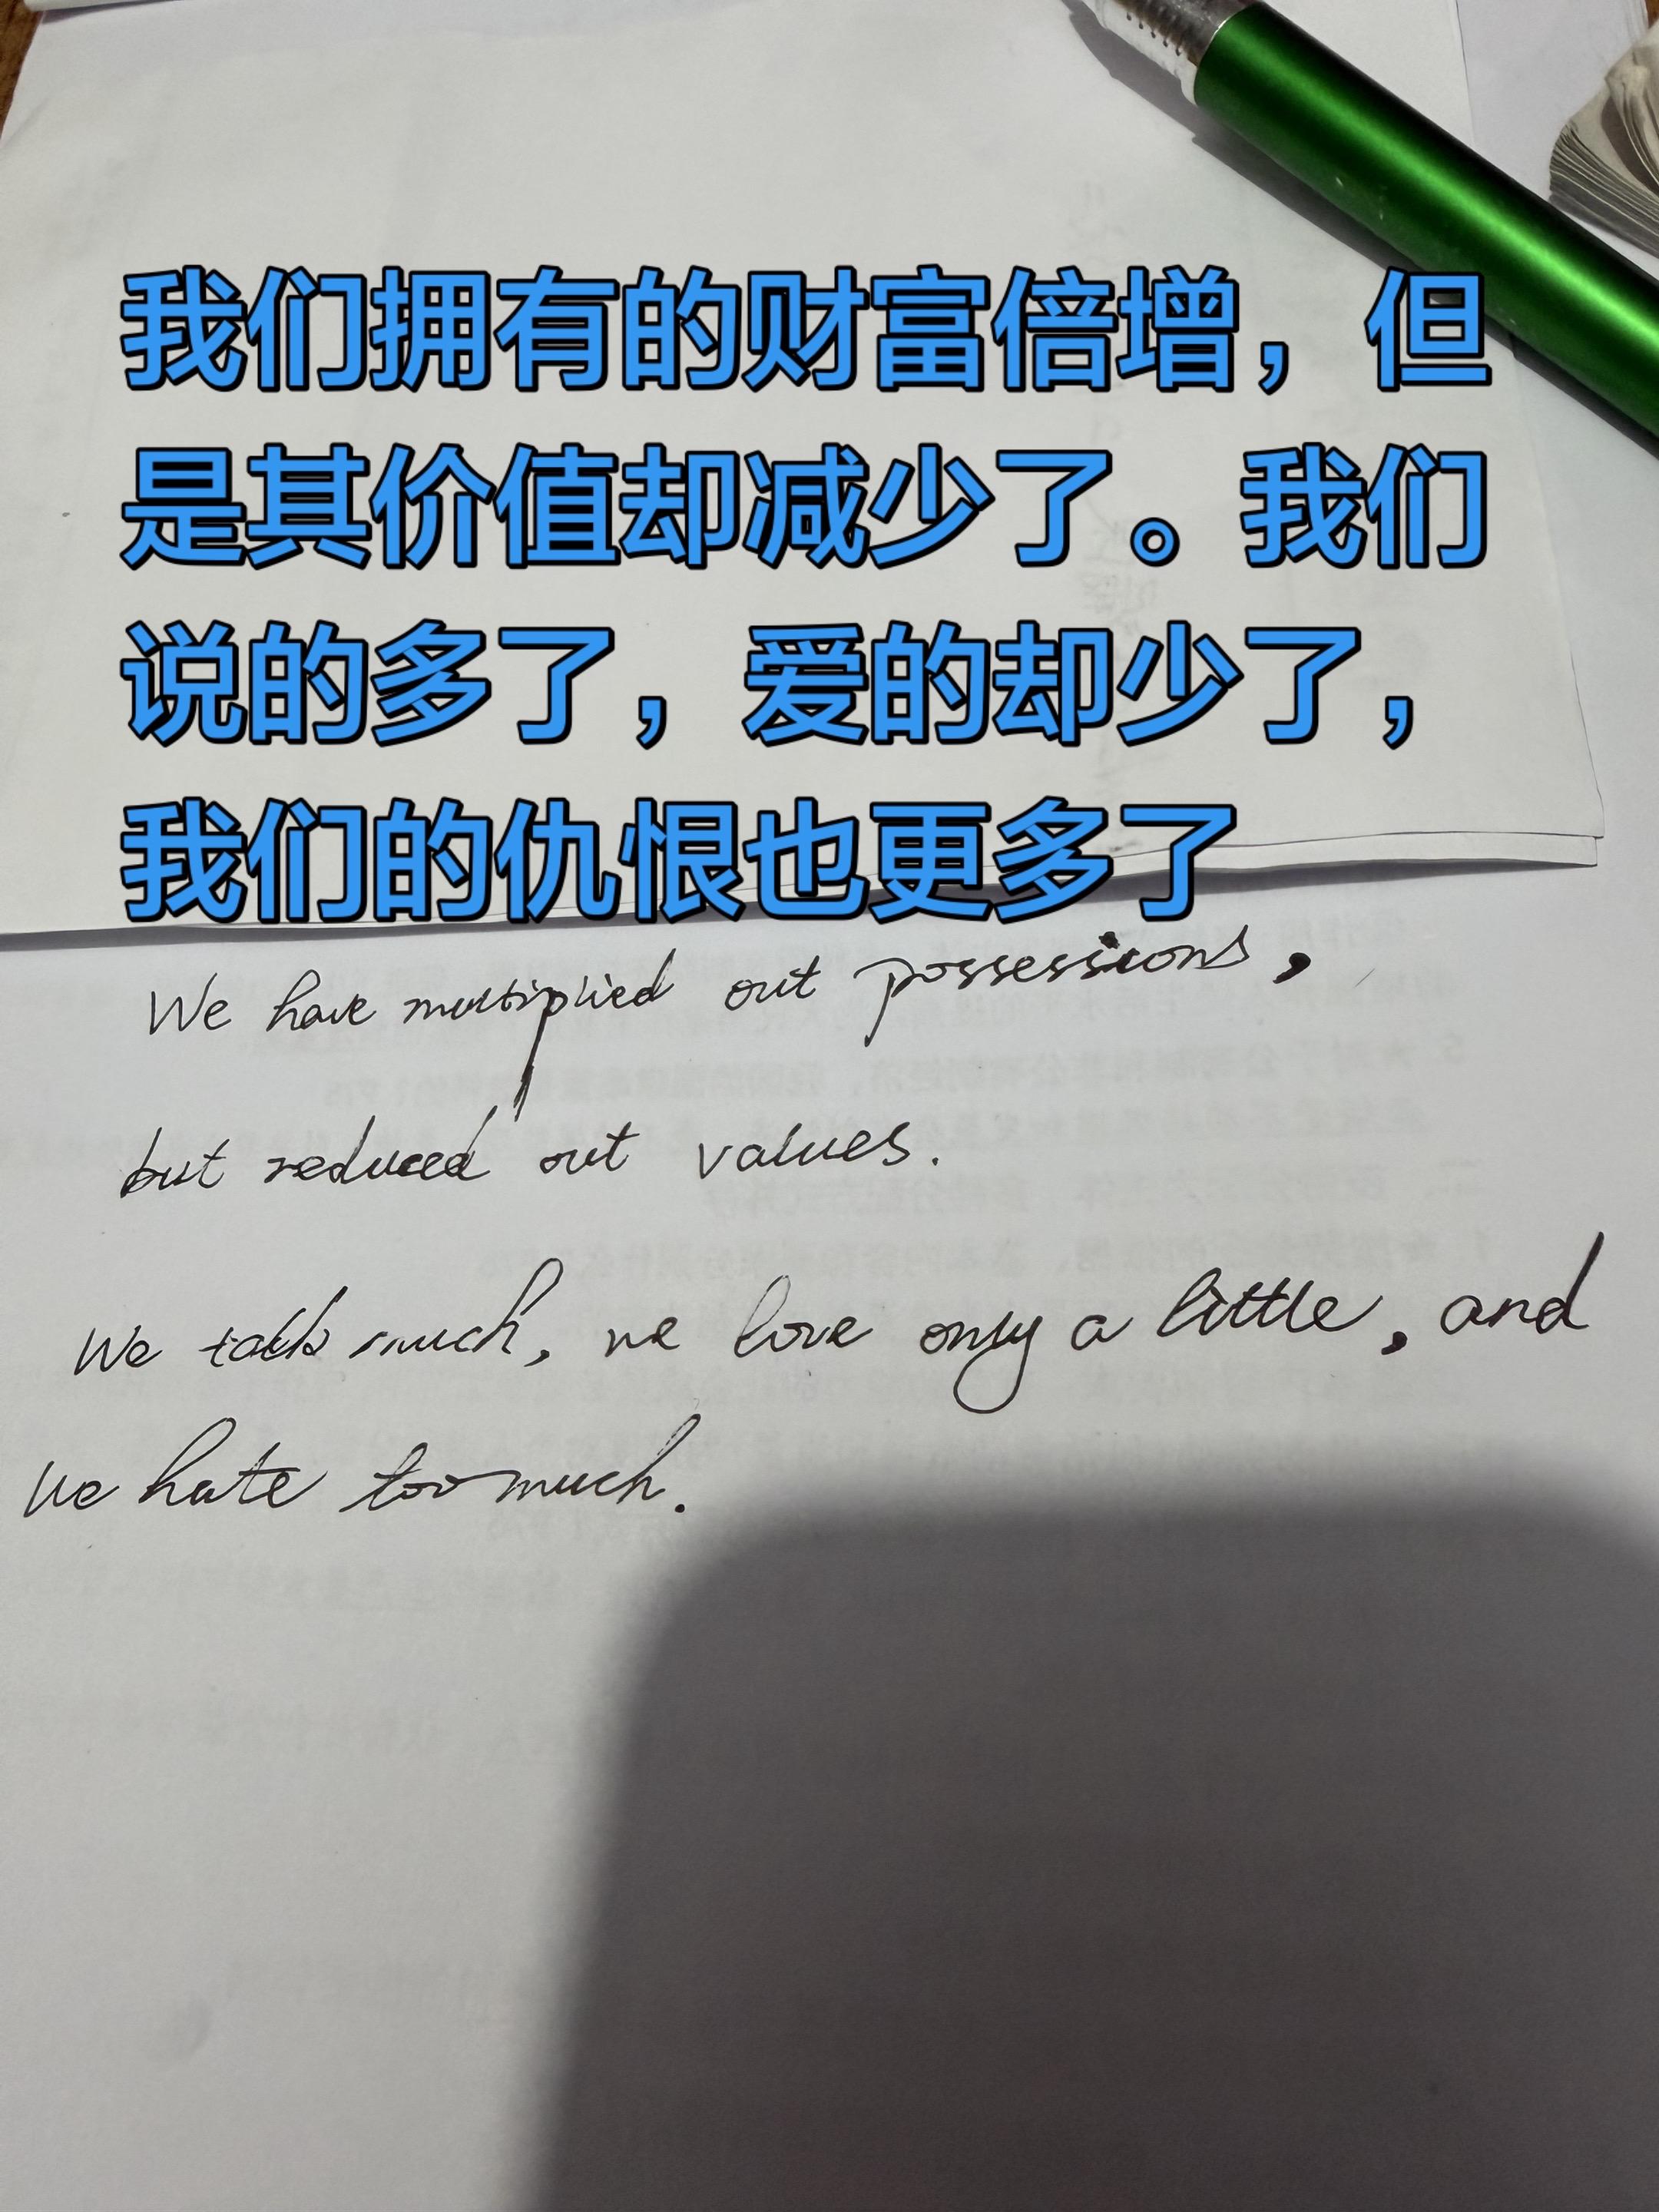 我们拥有的财富倍增，但
是其价值却减少了。我们
说的多了，爱的却少了，
我们的仇恨也更多了
We have multiplied out possessions,
but reduced out values.
We talk much, we love only a little, and
we hate too much.